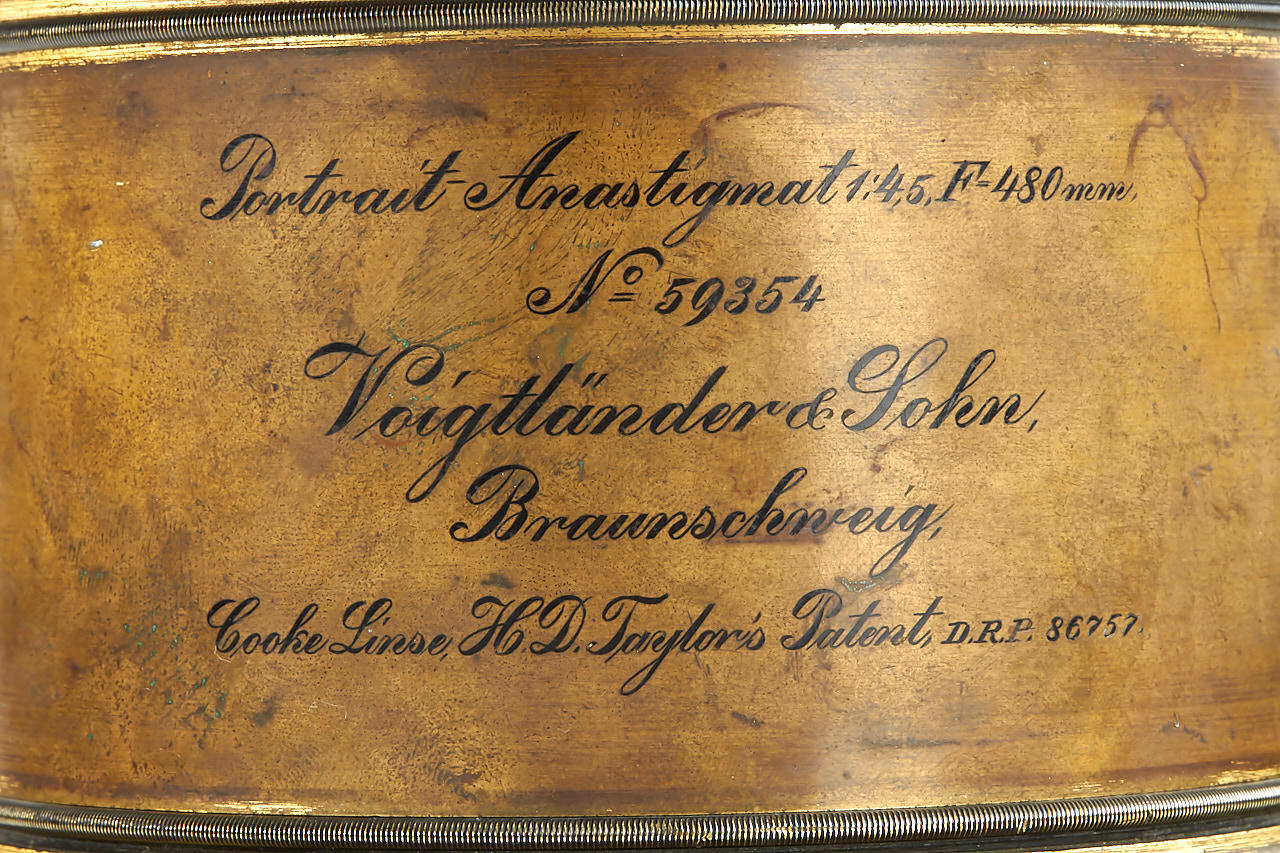 Portrait-Anastigmat 1:4,5, F=480mm,
No 59354
Voigtländer & Sohn,
Braunschweig,
Cooke Linse, H.D. Taylor's Patent, D.R.P. 86757.